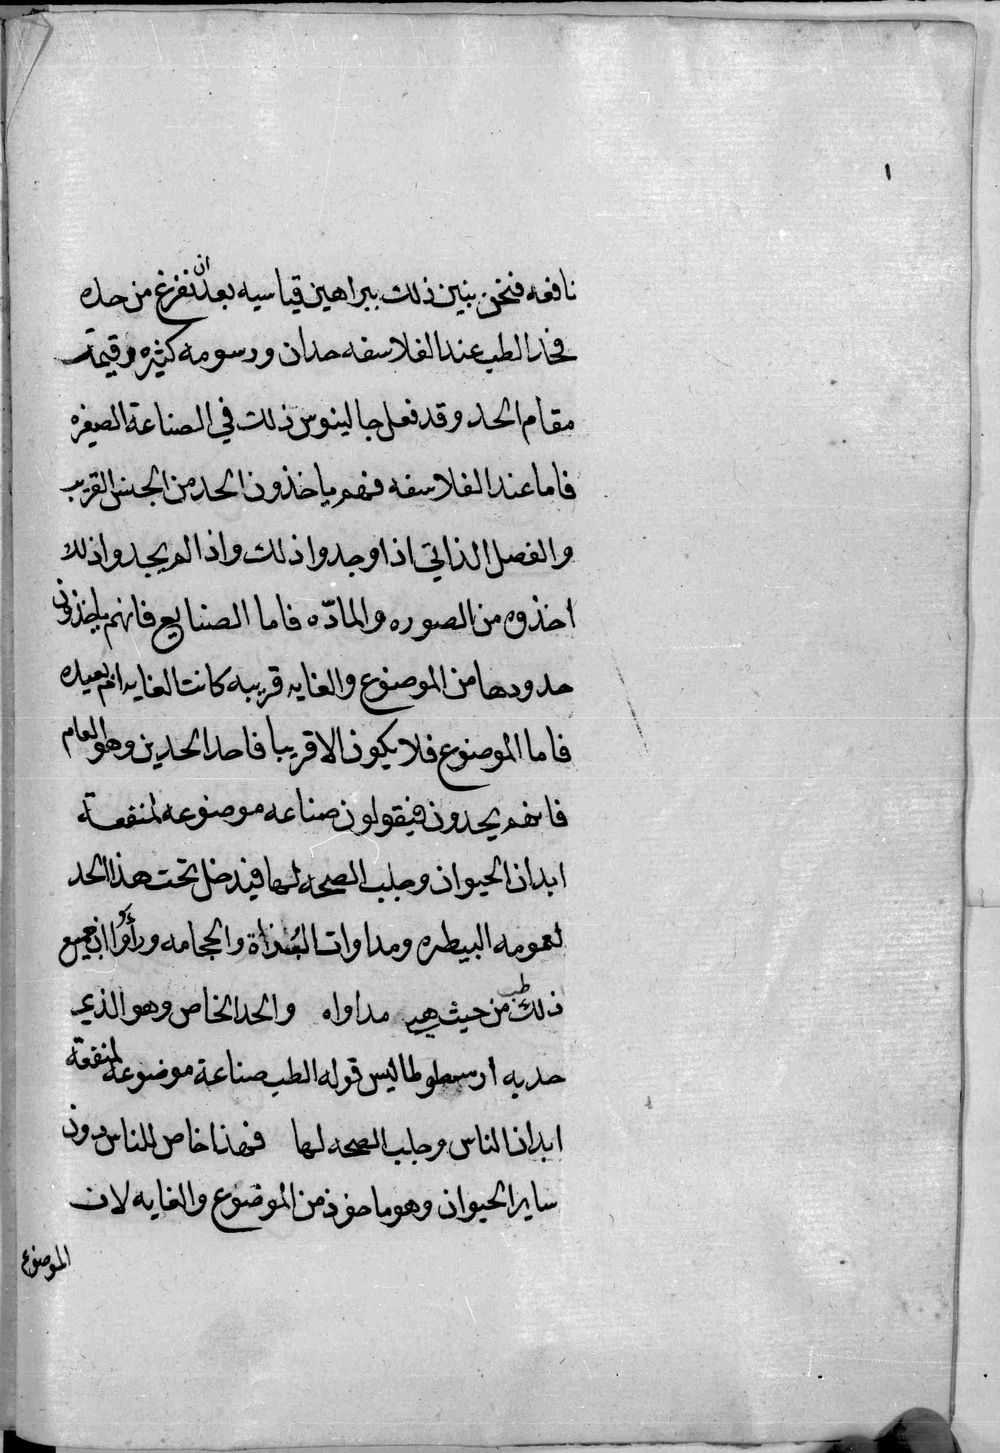 ١
نافعه فنحن نبين ذلك ببراهين قياسيه بعد ان نفرغ من حده
فحد الطب عند الفلاسفه حدان ورسومه كثيره وقيمة
مقام الحد وقد فعل جالينوس ذلك في الصناعة الصغيره
فاما عند الفلاسفه فهم ياخذون الحد من الجنس القريب
والفصل الذاتي اذا وجدوا ذلك واذا لم يجدوا ذلك
اخذوه من الصوره والمادّه فاما الصنايع فانهم ياخذون
حدودها من الموضوع والغايه قريبه كانت الغايه ام بعيده
فاما الموضوع فلا يكون الا قريبا فاحد الحدين وهو العام
فانهم يحدون فيقولون صناعه موضوعه لمنفعة
ابدان الحيوان وجلب الصحه لها فيدخل تحت هذا الحد
لعمومه البيطره ومداوات البُزاة والحجامه ورأوا ان جميع
ذلك طب من حيث هي مداواه والحد الخاص وهو الذي
حد به ارسطوطاليس قوله الطب صناعة موضوعه لمنفعة
ابدان الناس وجلب الصحه لها فهذا خاص للناس دون
ساير الحيوان وهو ماخوذ من الموضوع والغايه لان
الموضوع